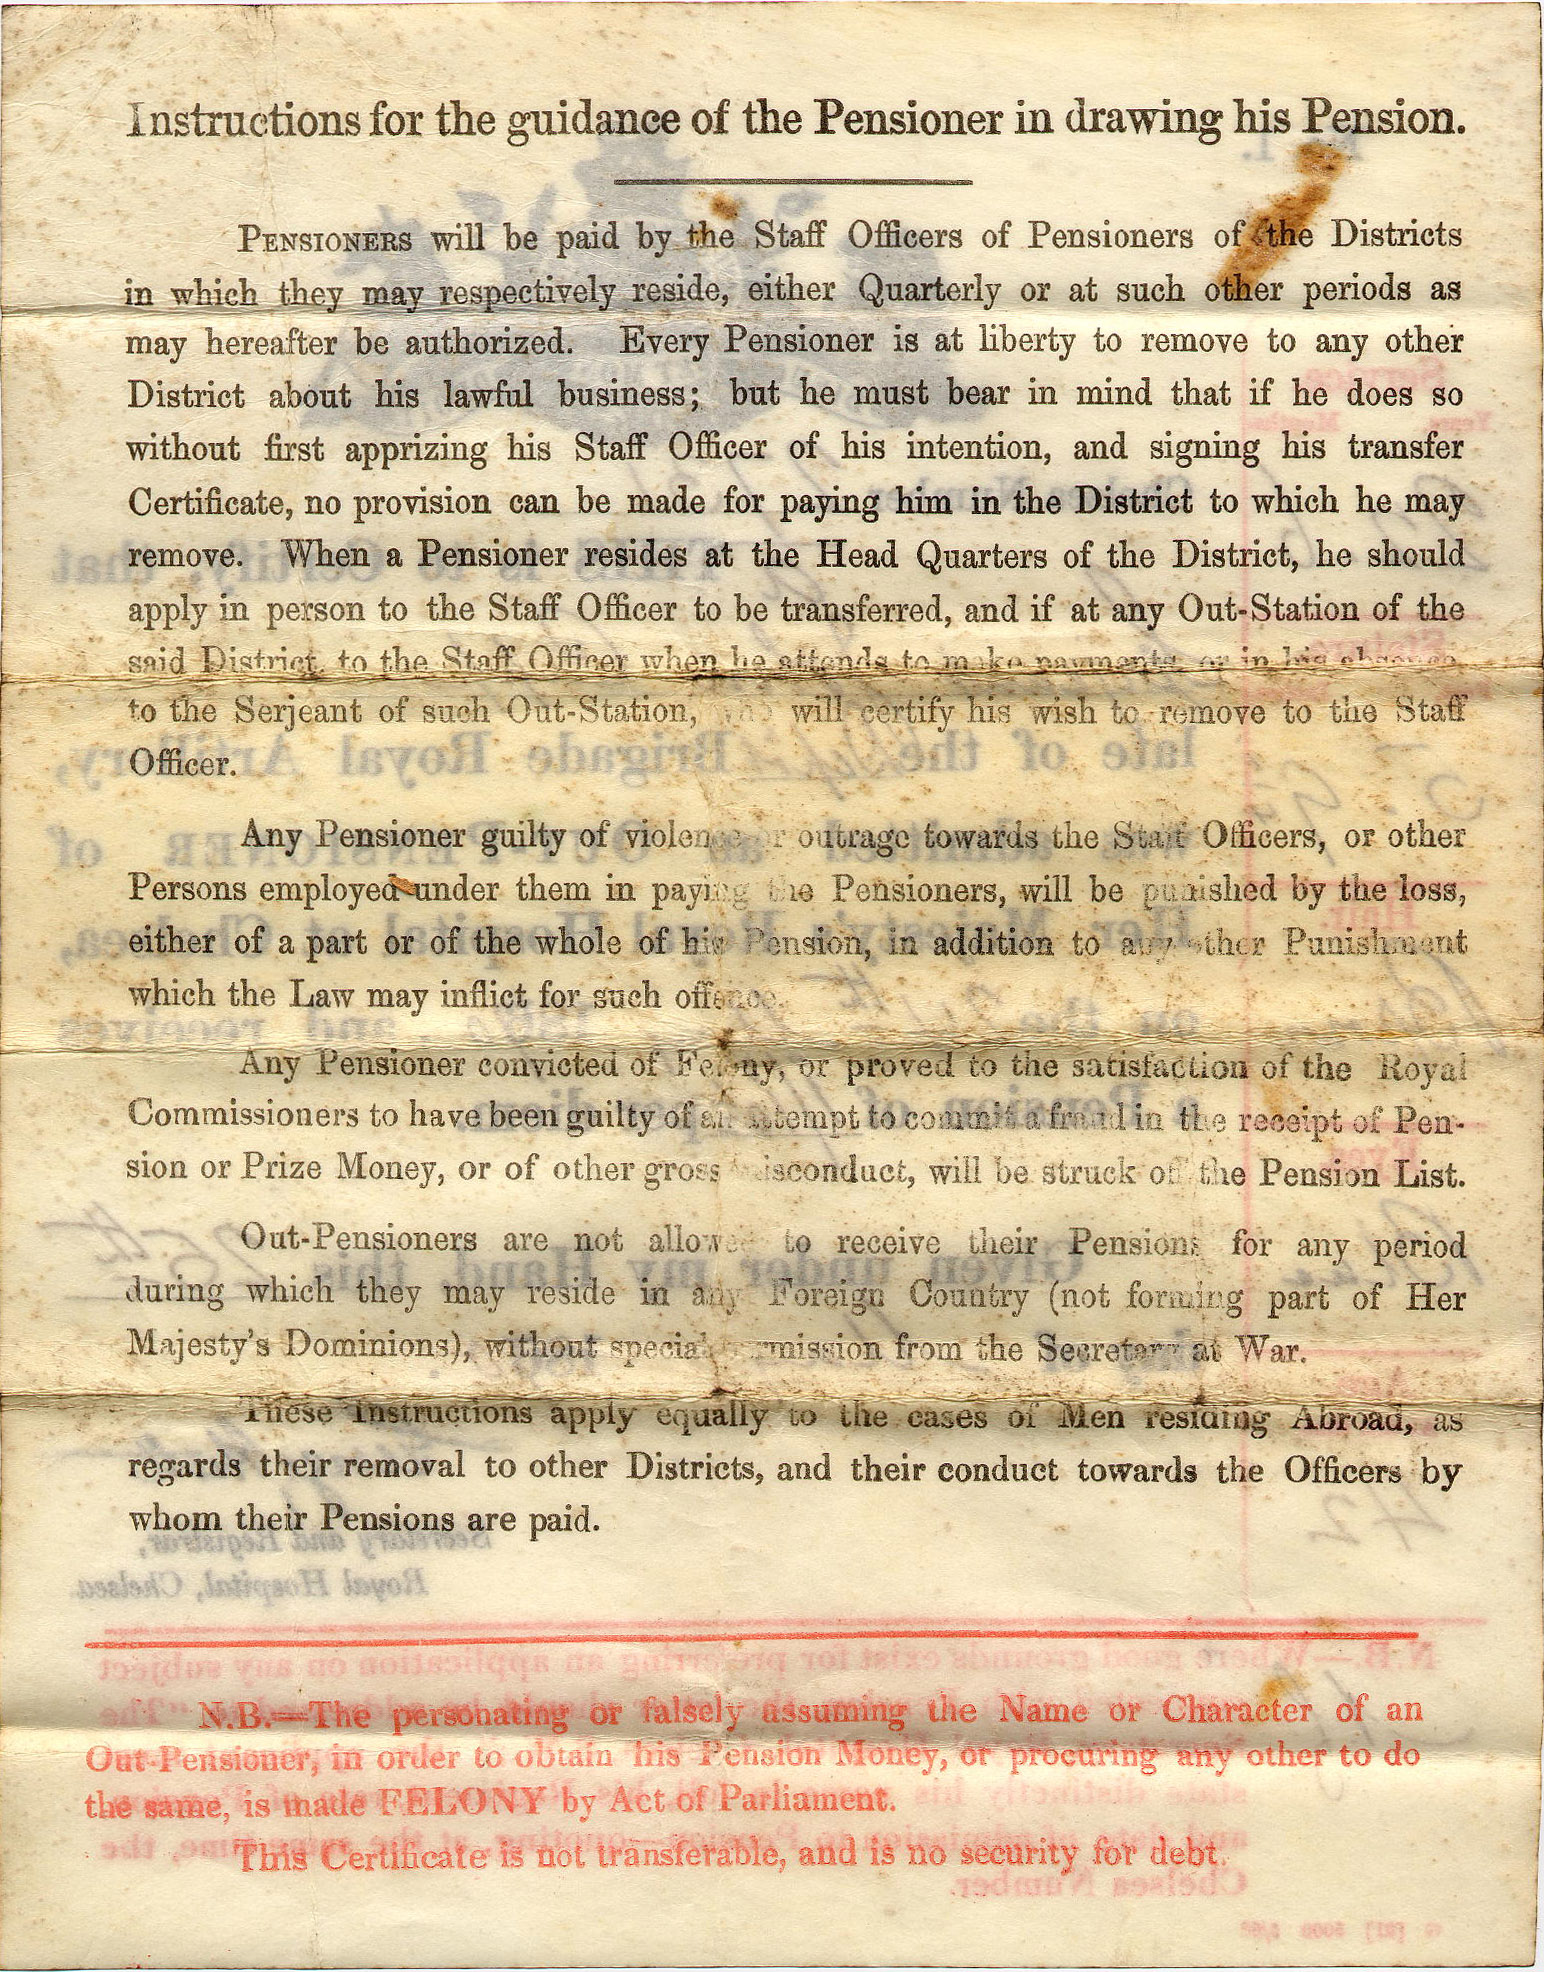 Instructions for the guidance of the Pensioner in drawing his Pension.
PENSIONERS will be paid by the Staff Officers of Pensioners of the Districts
in which they may respectively reside, either Quarterly or at such other periods as
may hereafter be authorized. Every Pensioner is at liberty to remove to any other
District about his lawful business; but he must bear in mind that if he does so
without first apprizing his Staff Officer of his intention, and signing his transfer
Certificate, no provision can be made for paying him in the District to which he may
remove. When a Pensioner resides at the Head Quarters of the District, he should
apply in person to the Staff Officer to be transferred, and if at any Out-Station of the
said District, to the Staff Officer when he attends to make payments, or in his absence,
to the Serjeant of such Out-Station, who will certify his wish to remove to the Staff
Officer.
Any Pensioner guilty of violence or outrage towards the Staff Officers, or other
Persons employed under them in paying the Pensioners, will be punished by the loss,
either of a part or of the whole of his Pension, in addition to any other Punishment
which the Law may inflict for such offence.
Any Pensioner convicted of Felony, or proved to the satisfaction of the Royal
Commissioners to have been guilty of an attempt to commit a fraud in the receipt of Pen-
sion or Prize Money, or of other gross misconduct, will be struck off the Pension List.
Out-Pensioners are not allowed to receive their Pensions for any period
during which they may reside in any Foreign Country (not forming part of Her
Majesty's Dominions), without special permission from the Secretary at War.
These Instructions apply equally to the cases of Men residing Abroad, as
regards their removal to other Districts, and their conduct towards the Officers by
whom their Pensions are paid.
N.B.—The personating or falsely assuming the Name or Character of an
Out-Pensioner, in order to obtain his Pension Money, or procuring any other to do
the same, is made FELONY by Act of Parliament.
This Certificate is not transferable, and is no security for debt.